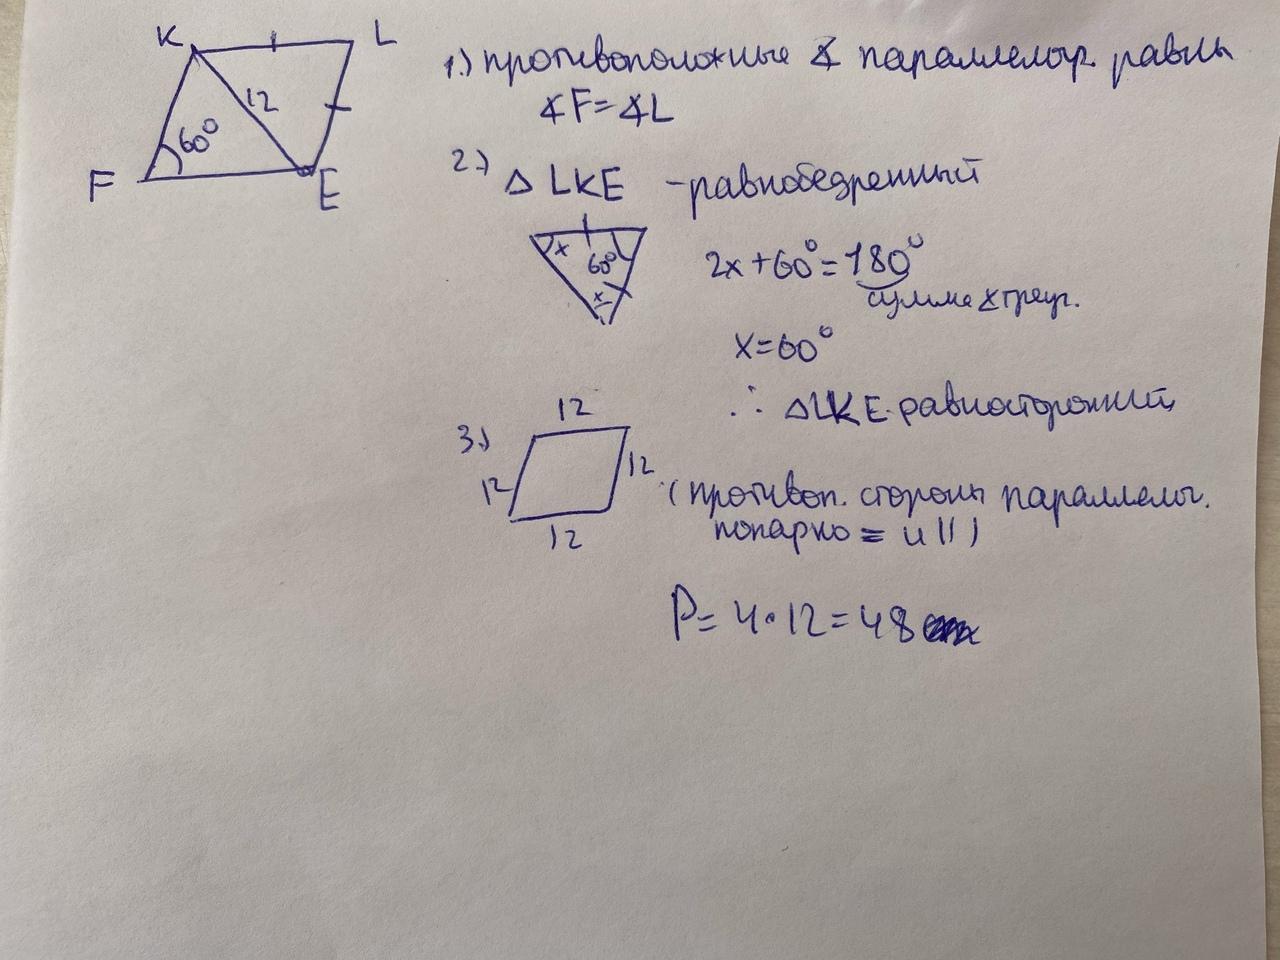 K L
12
60°
F E
1.) противоположные ∡ параллелогр. равны
∡F=∡L
2.) △ LKE - равнобедренный
x 60°
x
2x+60°=180°
сумма ∡ треуг.
x=60°
∴ △LKE-равносторонний
3.)
12
12 12
12
(противоп. стороны параллелог.
попарно = и ||)
P= 4·12=48